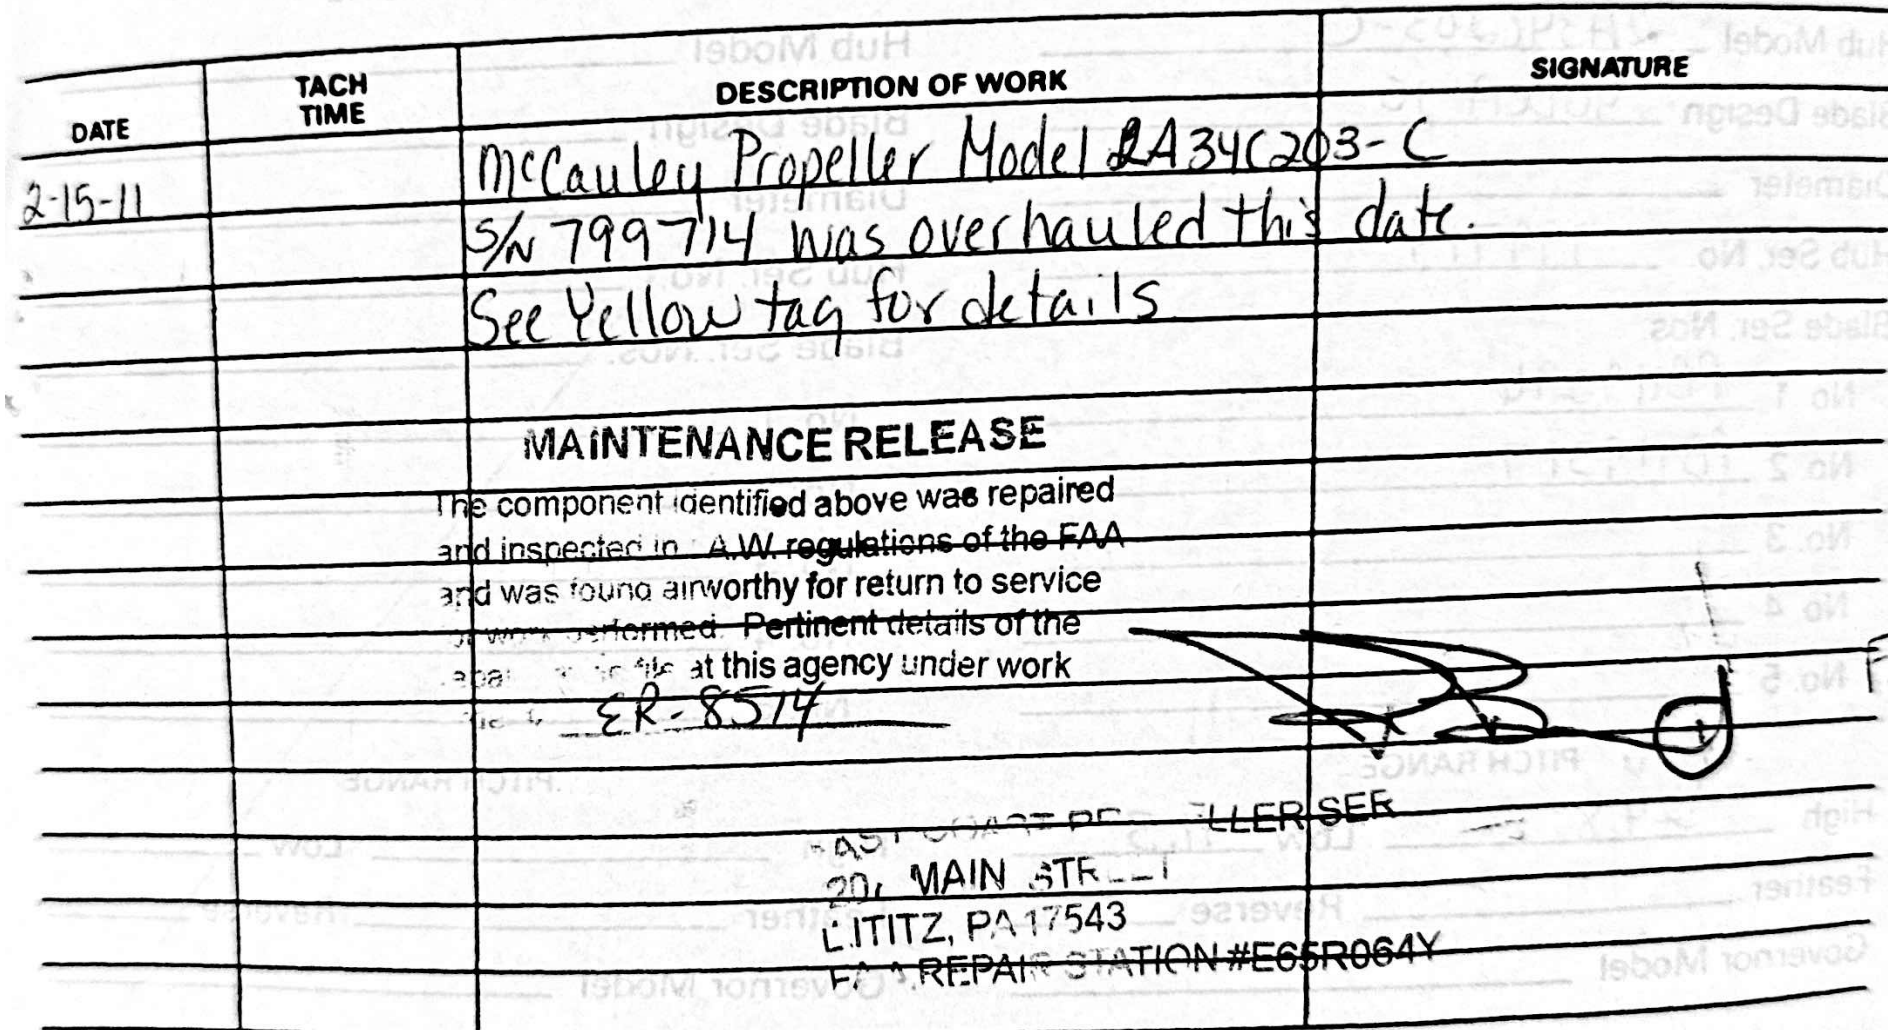 DATE TACH TIME DESCRIPTION OF WORK SIGNATURE
2-15-11 McCauley Propeller Model 2A34C203-C
S/N 799714 was overhauled this date.
See Yellow tag for details
MAINTENANCE RELEASE
The component identified above was repaired
and inspected in A.W. regulations of the FAA
and was found airworthy for return to service
work performed. Pertinent details of the
file at this agency under work
ER-8514
PROPELLER SER
MAIN STREET
LITITZ, PA 17543
REPAIR STATION #E65R064Y